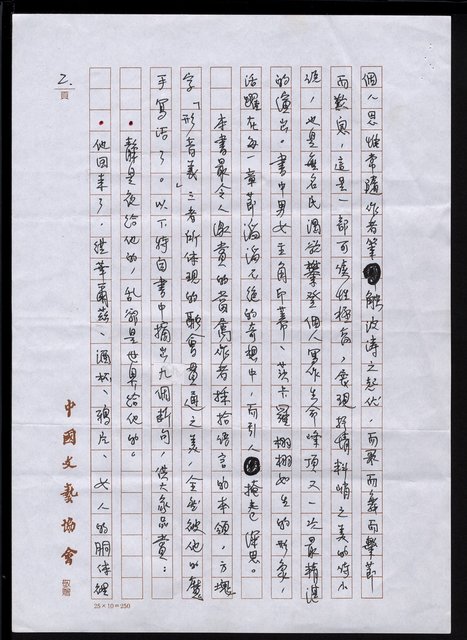 個人思惟常隨作者筆觸波濤之起伏，而歌而舞而擊節
而歎息，這是一部可讀性極高，表現抒情料峭之美的好小
說，也是無名氏攀登個人寫作生命峰頂又一次最精湛
的演出。書中男女主角印蒂、莎卡羅栩栩如生的形象，
活躍在每一章節滔滔不絕的奇想中，而引人掩卷深思。
本書最令人激賞的當為作者採拾語言的本領，方塊
字「形音義」三者所体現的融會貫通之美，全然被他的鵞
手寫活了。以下特自書中摘出九個斷句，供大家品賞：
靜是夜給他的，亂卻是世界給他的。
他回來了，從華爾茲、酒杯、鴉片、女人的胴体裡
2.頁
中國文藝協會 敬贈
25×10=250